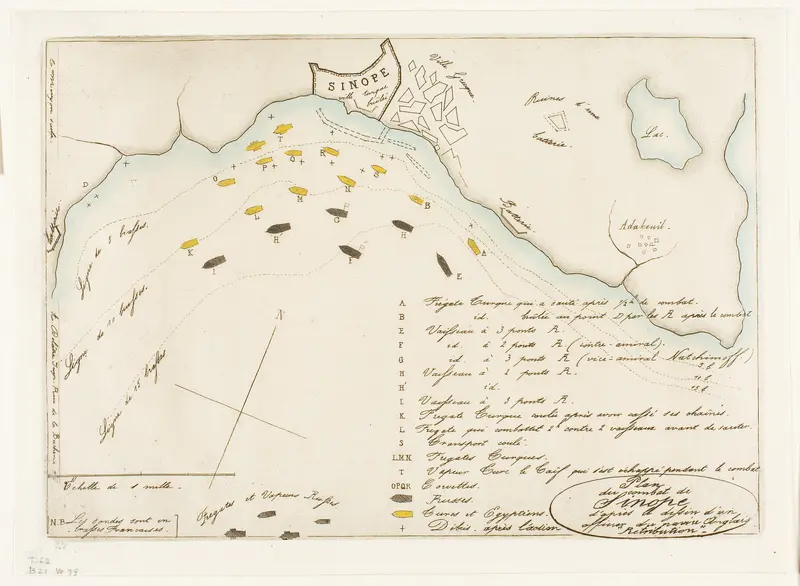 SINOPE
ville turque
brûlée
Ville Grecque.
Ruines d'une
batterie.
Lac.
Adakeuil.
Batterie
D
T
Q
R
P
O
S
N
M
B
L
G
F
H'
H
K
I
A
E
Ligne de 5 brasses.
Ligne de 10 brasses.
Ligne de 15 brasses
N
A Frégate Turque qui a sauté après 1/2 h de combat.
B id. brûlée au point D par les R après le combat
E Vaisseau à 3 ponts R.
F id. à 2 ponts R (contre-amiral).
G id. à 3 ponts R (vice-amiral Natchimoff)
H Vaisseau à 2 ponts R.
H' id.
I Vaisseau à 3 ponts R.
K Frégate Turque coulée après avoir cassé ses chaînes.
L Frégate qui combattit 2h contre 2 vaisseaux avant de sauter.
S Transport coulé.
L.M.N. Frégates Turques.
T Vapeur Turc le Taif qui s'est échappé pendant le combat
OPQR Corvettes.
Russes.
Turcs et Egyptiens.
+ Débris après l'action
5 b.
10 b.
15 b.
Echelle de 1 mille.
Frégates et Vapeurs Russes
N.B. Les sondes sont en
brasses Françaises.
Plan
du combat de
Sinope
d'après le dessin d'un
officier du navire Anglais
"Retribution".